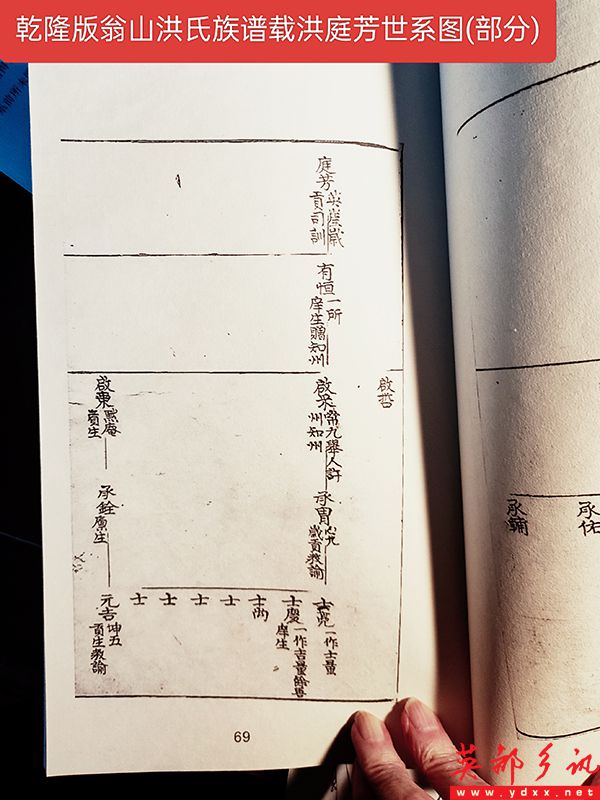 乾隆版翁山洪氏族谱载洪庭芳世系图(部分)
庭芳
歲
貢司訓
有恒
一所
庠生贈知州
啟哲
啟采
九舉人許
州知州
承胄
心九
歲貢教諭
士
一作士量
士慶
一作吉量
庠生
士
士
士
士
士
啟東
黙庵
貢生
承銓
廣生
元吉
坤五
貢生教諭
承佑
承輔
69
英都乡讯
www.ydxx.net